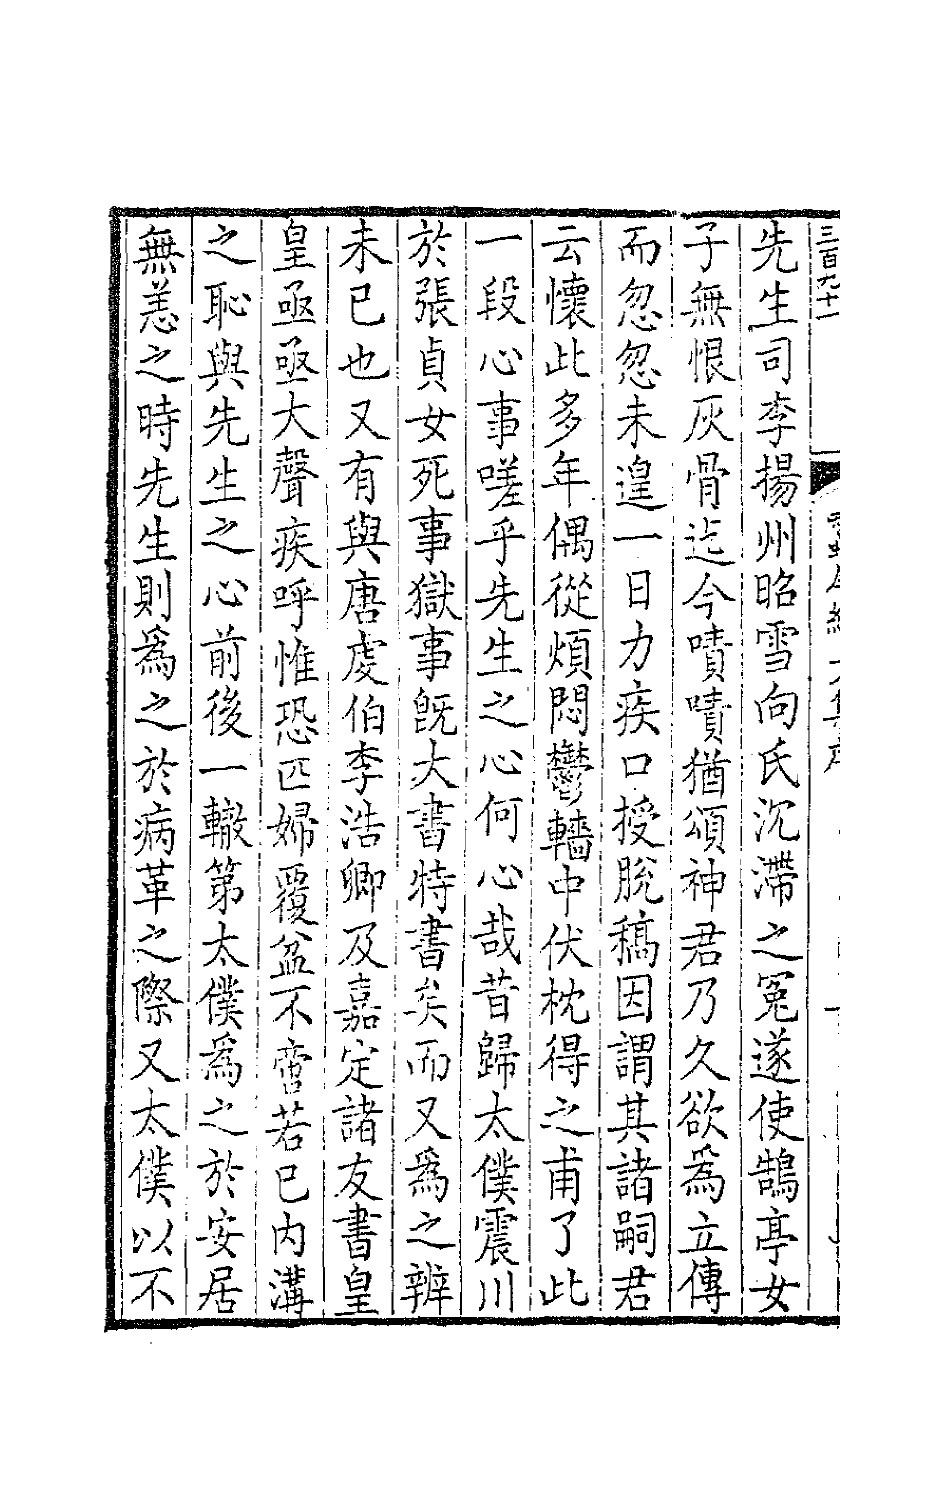 三百九十一
先生司李揚州昭雪向氏沉滯之冤遂使鵠亭女
子無恨灰骨迄今嘖嘖猶頌神君乃久欲爲立傳
而忽忽未遑一日力疾口授脫稿因謂其諸嗣君
云懷此多年偶從煩悶鬱轖中伏枕得之甫了此
一段心事嗟乎先生之心何心哉昔歸太僕震川
於張貞女死事獄事旣大書特書矣而又爲之辨
未已也又有與唐虔伯李浩卿及嘉定諸友書皇
皇亟亟大聲疾呼惟恐匹婦覆盆不啻若已內溝
之恥與先生之心前後一轍第太僕爲之於安居
無恙之時先生則爲之於病革之際又太僕以不